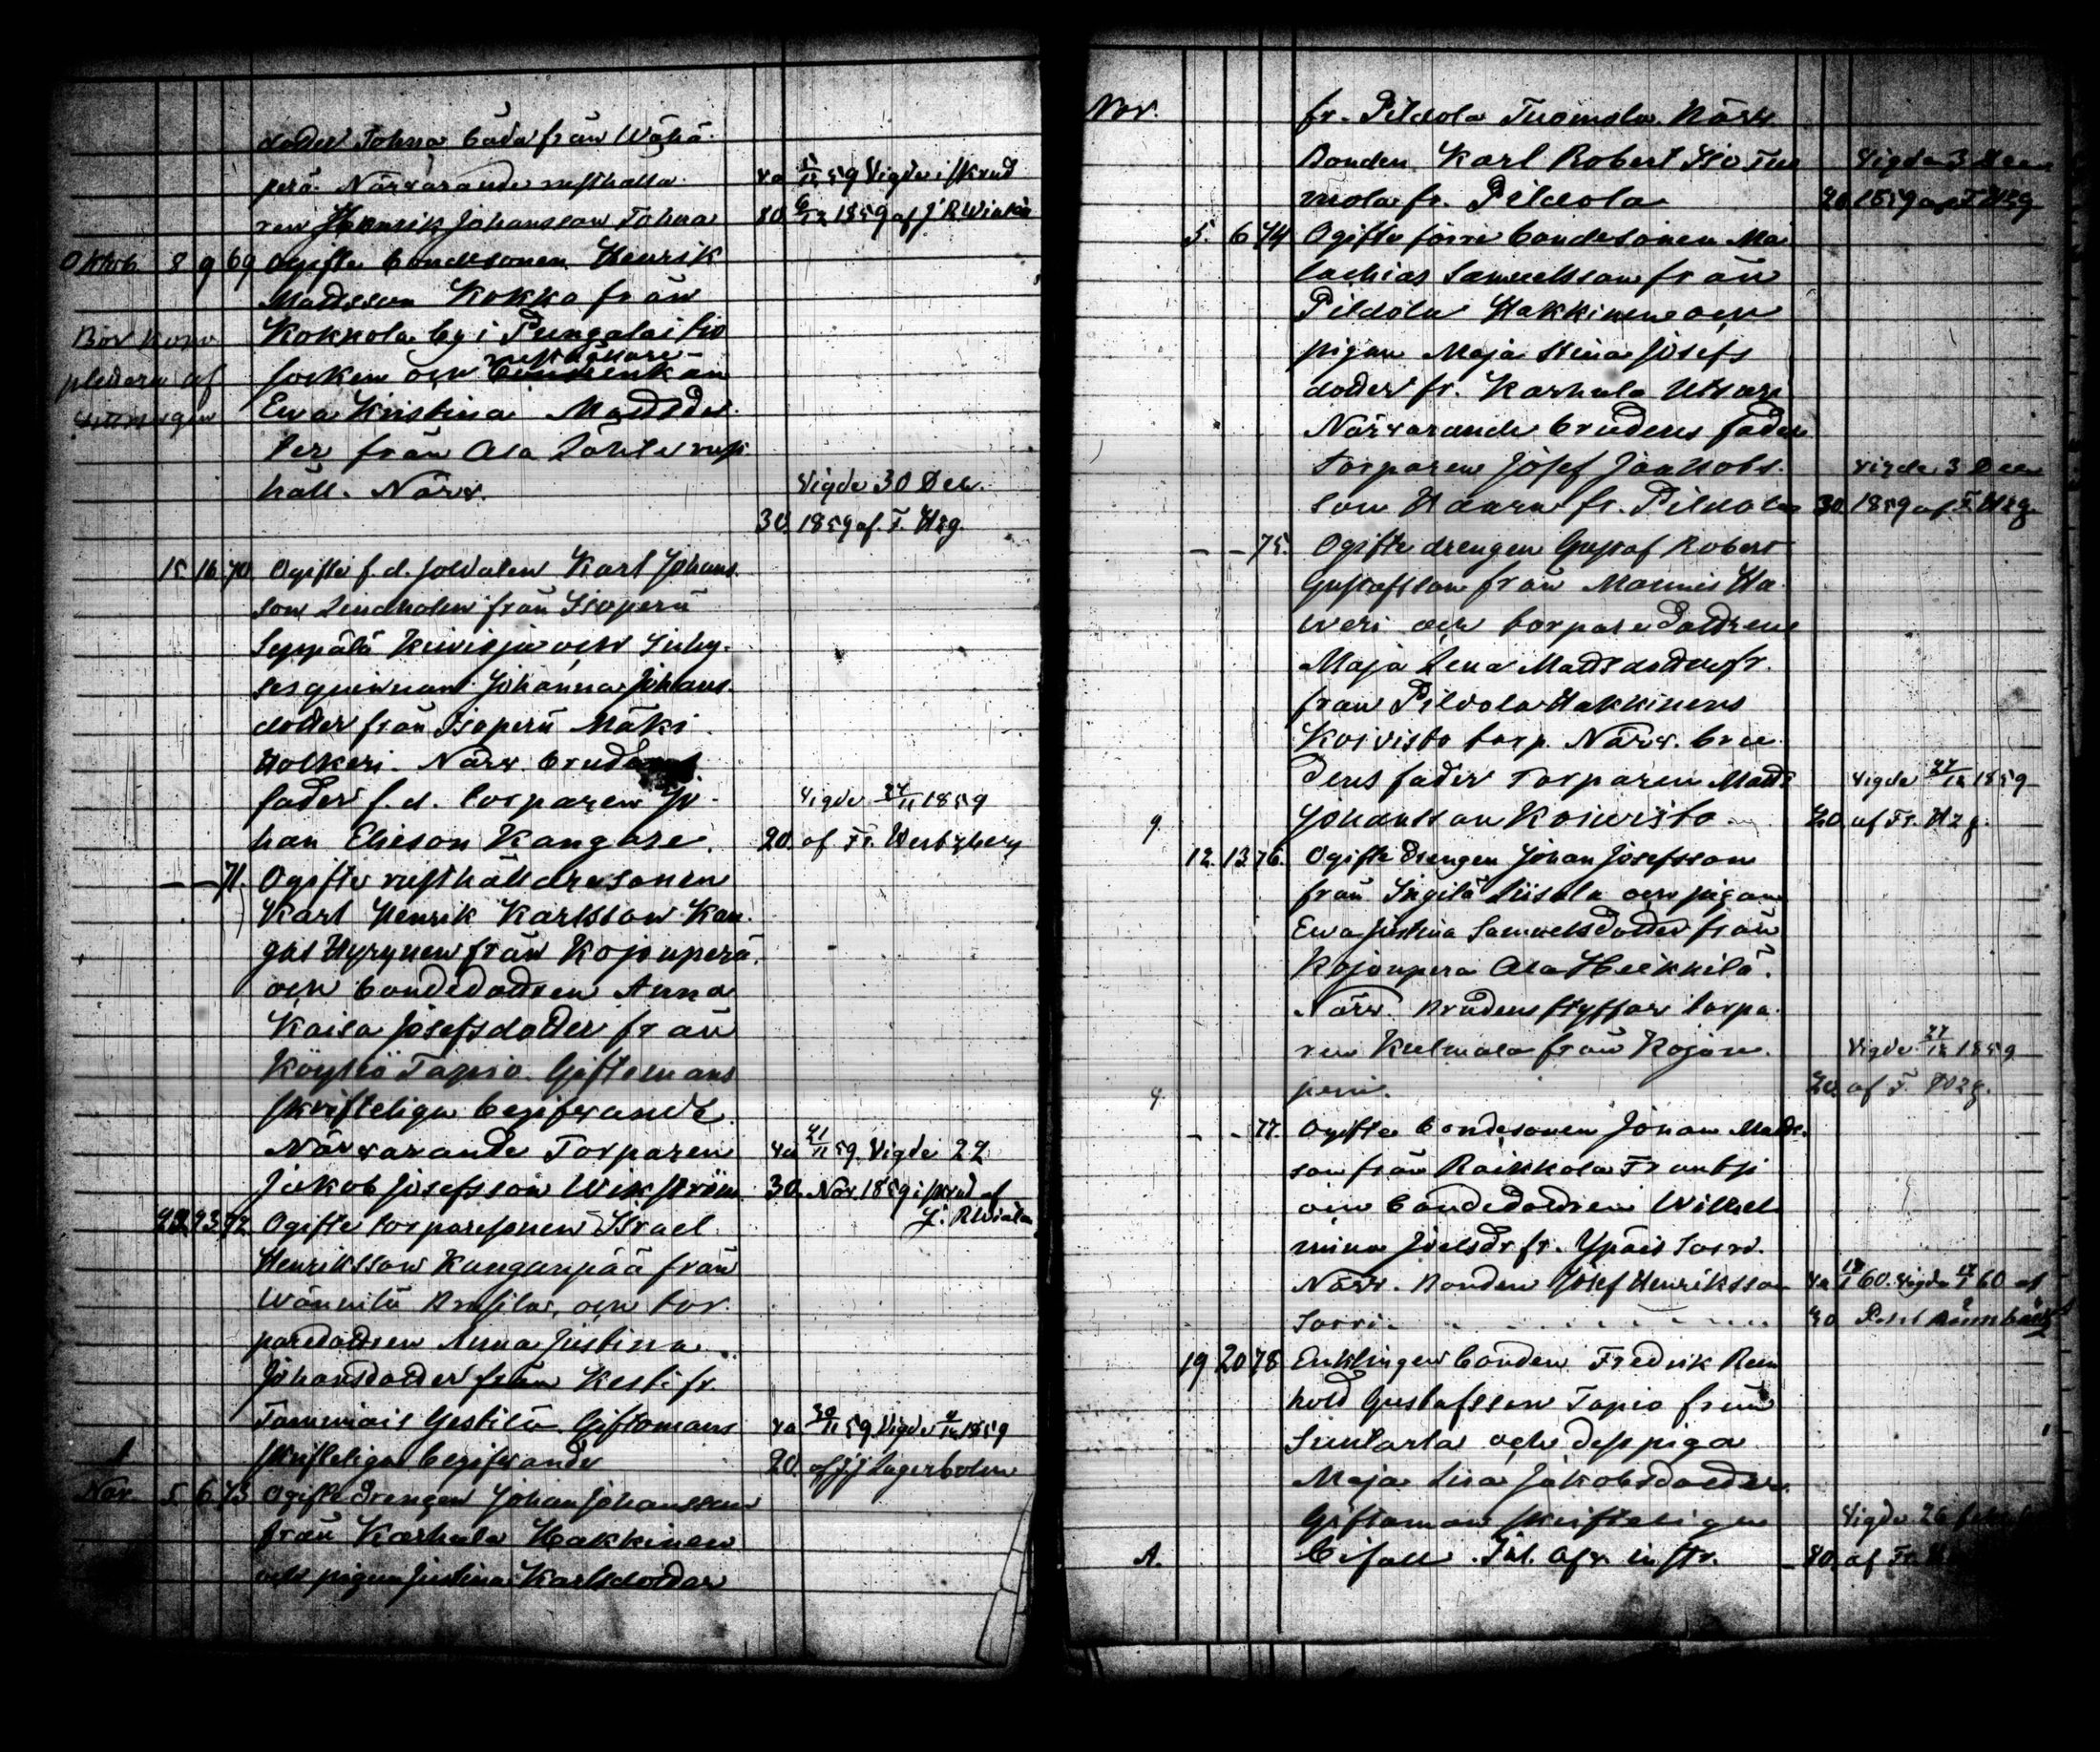 dotter Tohna båda från Wähä
perä. Närvarande rusthålla
ren Henrik Johansson Tohna
va 5/12 59 Vigde i skrud
80. 6/12 1859 af J R Winter
Oktob. 8 9 69 Ogifte bondesonen Henrik
Mattsson Kokko från
Kokkola by i Pungalaitio
Bör komp
pletteras af
socken och rusthållare-
enkan
Ewa Kristina Mattsdot
ter från Ala rust
håll. Närv.
Vigde 30 Dec.
30. 1859 af F. Hzg.
15 16 70 Ogifte f.d. soldaten Karl Johans
son Lindholm från Isoperä
Seppälä och Inhy
sesqwinnan Johanna Johans
dotter från Isoperä Mäki
Holkeri. Närv. brudens
fader f.d. torparen Jo
han Elieson Kangare.
Vigde 27/11 1859
20. af Fr. Hertzberg
– – 71. Ogifte rusthållaresonen
Karl Henrik Karlsson Kan
gas Hyrynen från Kojonperä
och bondedottren Anna
Kaisa Josefsdotter från
Köyliö Tapio. Giftomans
skrifteliga begifvande
Närvarande Torparen
Jakob Josefsson Wikström
va 21/11 59. Vigde 22
30. Nov. 1859 i skrud af
J. R Winter
22 23 72 Ogifte torparesonen Israel
Henriksson Kanganpää från
Wännilä Anssila, och tor
paredottren Anna Justina
Johansdotter från Kesti fr.
Tammiais Yestilä. Giftomans
skrifteliga begifvande
va 30/11 59 Vigde 4/12 1859
20. af J J Lagerbohm
Nov. 5 6 73 Ogifte drengen Johan Johansson
från Karhula Hakkinen
och pigan Justina Karlsdotter
Nov.
fr. Pildola Tuomola. Närv.
Bonden Karl Robert Iso Tuo
mola fr. Pildola
Vigde 3 Dec
20 1859 af F Hzg
5. 6 74 Ogifte förre bondesonen Ma
lachias Samuelsson från
Pildola Hakkinen och
pigan Maja Stina Josefs
dotter fr. Karhula Utsari
Närvarande brudens fader
Torparen Josef Jaakobs
son Haara fr. Pildola
Vigde 3 Dec
30. 1859 af F. Hzg
– – 75. Ogifte drengen Gustaf Robert
Gustafsson från Mannis Ha
weri och torparedottren
Maja Lena Mattsdotter fr.
från Pildola Hakkinens
Koivisto torp. Närv. bru
dens fader Torparen Matts
Johansson Koiwisto
Vigde 27/12 1859
20. af Fr. Hzg.
9.
12. 13 76. Ogifte drengen Johan Josefsson
från Ingilä Liisala och pigan
Ewa Justina Samuelsdotter från
Kojonperä Ala Heikkilä.
Närv. Brudens styffar torpa
ren Kulmala från Kojon
perä.
Vigde 27/12 1859
20. af F. Hzg.
9.
– – 77. Ogifte bondesonen Johan Matts
son från Raikkola Frantsi
och bondedottren Wilhel
mina Joelsdr fr. Ypäis Sorri.
Närv. Bonden Josef Henriksson
Sorri.
va 18/1 60. Vigde 19/1 60 af
19 20 78 Enklingen bonden Fredrik Rein
hold Gustafsson Tapio från
Suntarla och dess piga
Maja Lisa Jakobsdotter
Giftoman skrifteligen
bifall. Inl. afv. instr.
Vigde 26
80. af Fr.
A.